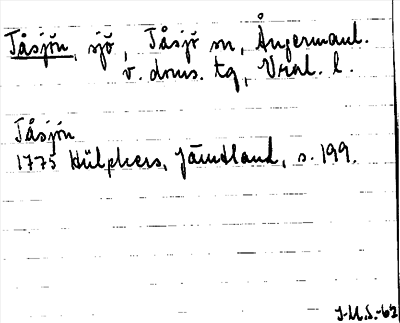 Tåsjön, sjö, Tåsjö sn, Ångermanl.
v. doms. tg, Vral. l.
Tåsjön
1775 Hülphers, Jämtland, s. 199.
J-M.S.-62